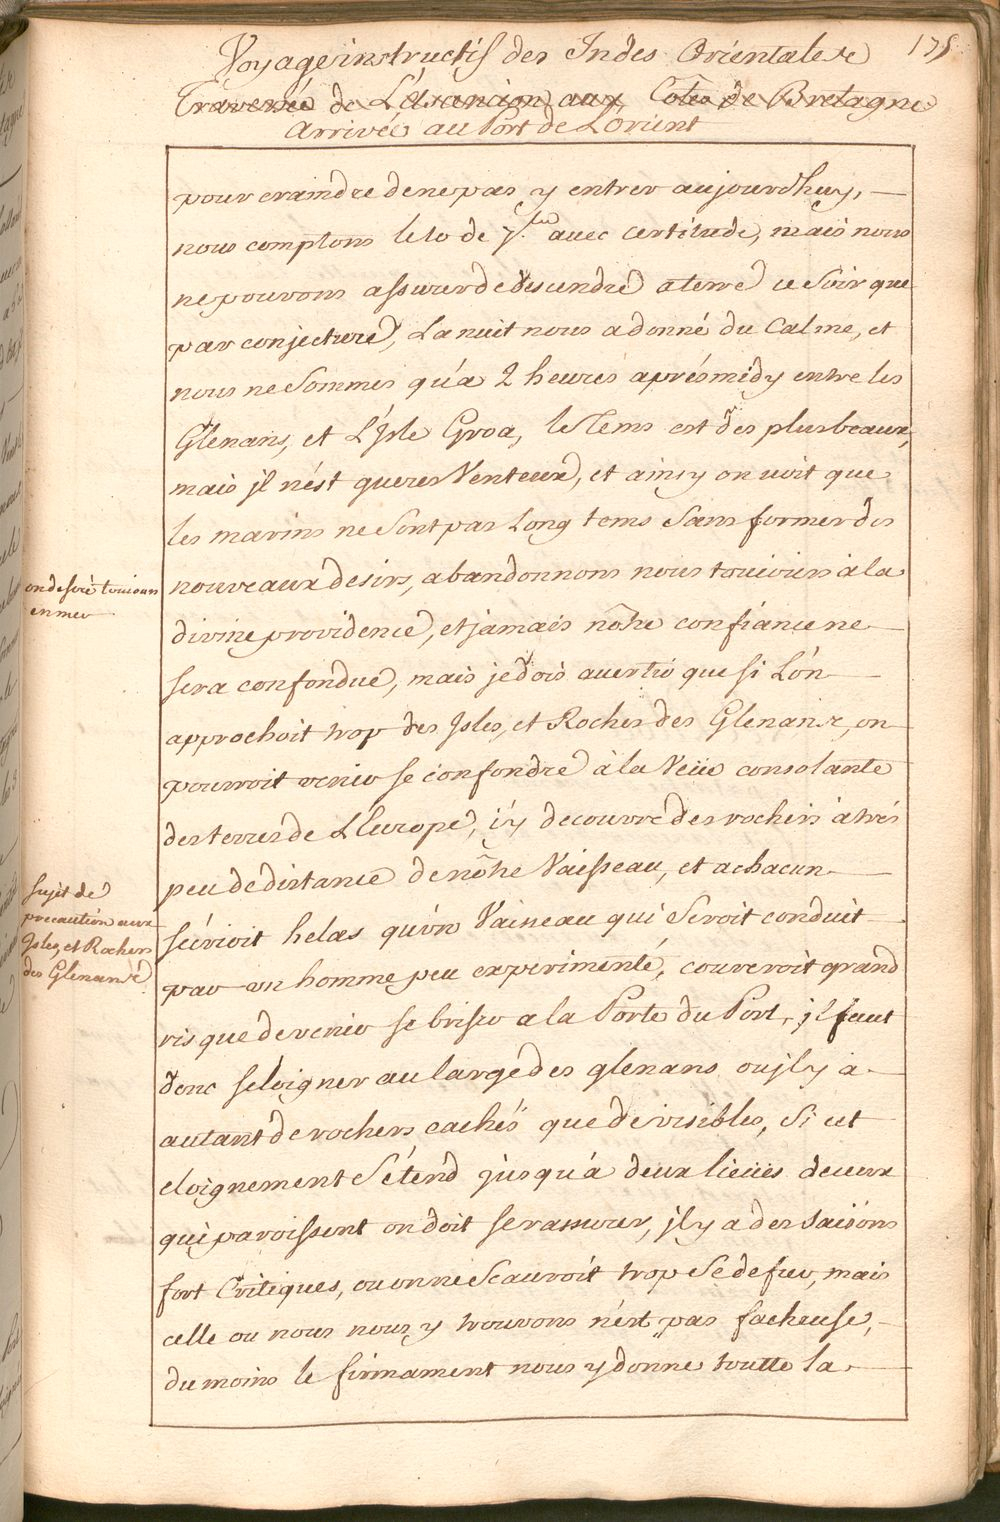 175
Voyage instructif des Indes Orientales
Traversée de L'Ascencion aux Côtes de Bretagne
Arrivée au Port de L'orient
pour craindre de ne pas y entrer aujourdhuy,
nous comptons le 10 de 7.bre avec certitude, mais nous
ne pouvons assurer de descendre a terre ce Soir que
par conjecture, La nuit nous a donné du Calme, et
nous ne Sommes qu'a 2 heures aprés midy entre les
Glenans, et L'Isle Groa, le Tems est des plus beaux,
mais jl nést gueres Venteux, et ainsy on voit que
les marins ne Sont pas Long tems Sans former des
on desire toujours
en mer
nouveaux desirs, abandonnons nous toujours à la
divine providence, et jamais nôtre confiance ne
sera confondue, mais je dois avertir que si L'ón
approchoit trop des Isles, et Rochers des Glenans, on
pourroit venir se confondre à la Veüe consolante
des terres de L'Europe, j'y decouvre des rochers à trés
peu de distance de nôtre Vaisseau, et a chacun
Sujet de
precaution aux
Isles, et Rochers
des Glenans
sécrioit helas qu'ún Vaisseau qui Seroit conduit
par un homme peu experimenté, coureroit grand
risque de venir se briser a la Porte du Port, jl faut
donc seloigner au large des glenans ou jl y a
autant de rochers cachés que de visibles, Si cet
eloignement S'étend jusqu'à deux lieües de ceux
qui paroissent on doit se rassurer, jl y a des Saisons
fort Critiques, ou on ne Scauroit trop Se defier, mais
celle ou nous nous y trouvons n'ést pas facheuse,
du moins le firmament nous y donne toutte la